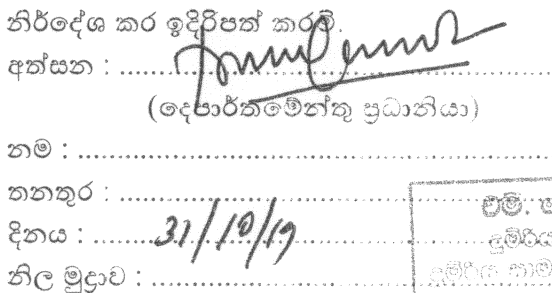 නිර්දේශ කර ඉදිරිපත් කරමි.
අත්සන : ........................................
(දෙපාර්තමේන්තු ප්‍රධානියා)
නම : ........................................
තනතුර : ........................................
දිනය : 31/10/19
නිල මුද්‍රාව : ........................................
එම්.
දුම්රිය
දුම්රිය